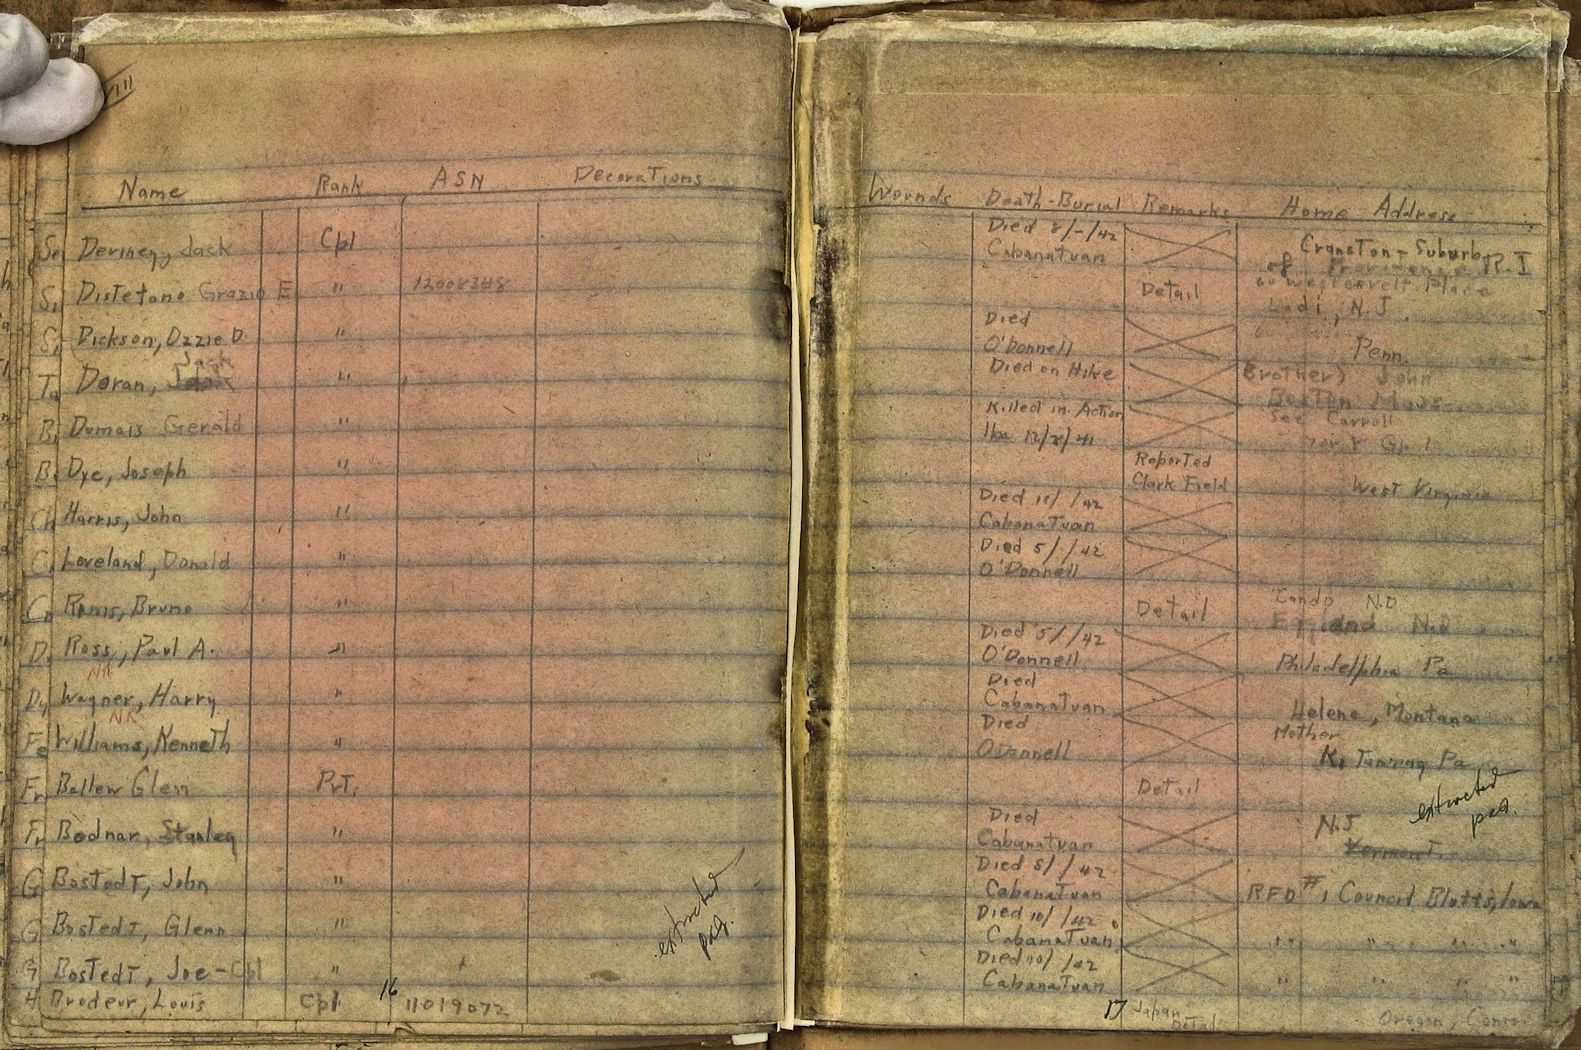 Name Rank ASN Decorations
Dermegy, Jack Cpl
Distefano Grazio E " 12008348
Dickson, Ozzie D. "
Jack
Doran, "
Dumais Gerald "
Dye, Joseph "
Harris, John "
Loveland, Donald "
Remis, Bruno "
Ross, Paul A. "
NK
Wagner, Harry "
NK
Williams, Kenneth "
Ballew Glen Pvt.
Bodnar, Stanley "
Bostedt, John "
Bostedt, Glenn "
extracted
Bostedt, Joe - Cpl "
Brodeur, Louis Cpl 16 11019072
Wounds Death-Burial Remarks Home Address
Died 8/-/42 Cranston - Suburb
Cabanatuan of Providence R.I
Detail Westervelt Place
Lodi, N.J.
Died
O'Donnell Penn.
Died on Hike Brother) John
Boston Mass
Killed in Action See Carroll
Iba 12/8/41
Reported
Clark Field West Virginia
Died 11/ /42
Cabanatuan
Died 5/ /42
O'Donnell
Cando N.D
Detail N.D
Died 5/ /42
O'Donnell Philadelphia Pa
Died
Cabanatuan Helena, Montana
Died Mother
O'Donnell Kittanning Pa
Detail
extracted
Died N.J
Cabanatuan Vermont
Died 8/ /42
Cabanatuan RFD #1 Council Bluffs, Iowa
Died 10/ /42
Cabanatuan " " " "
Died 10/ /42
Cabanatuan " " " "
17 Japan
Detail Oregon, Conn